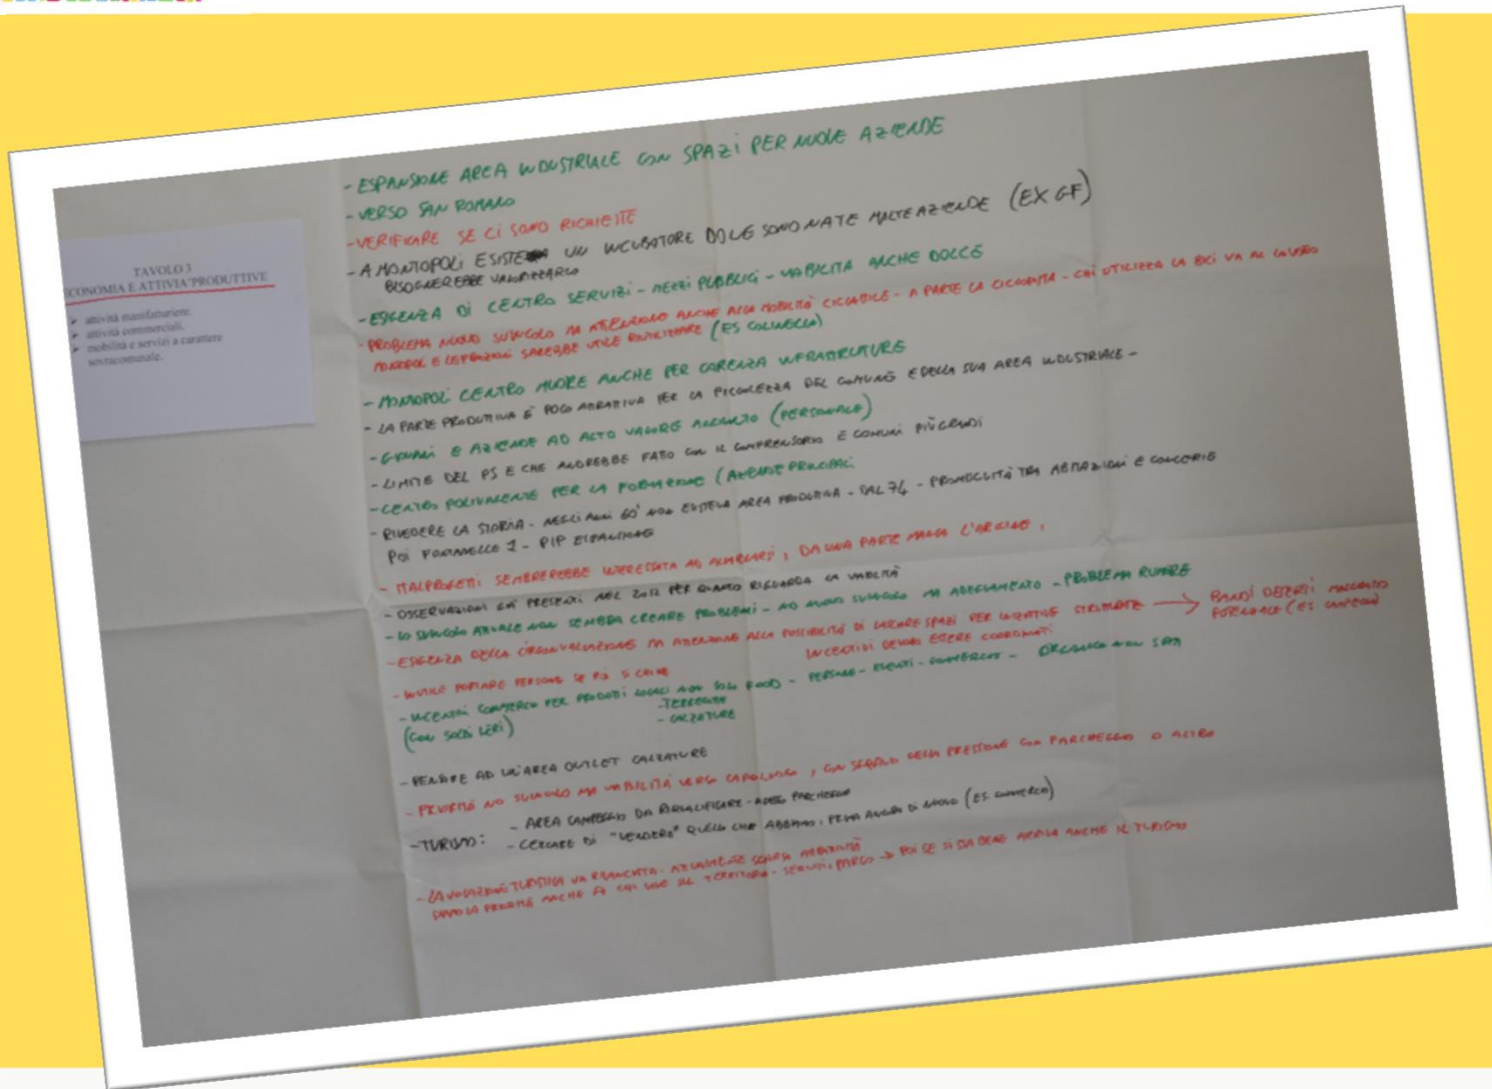 TAVOLO 3
ECONOMIA E ATTIVIA'PRODUTTIVE
attività manifatturiere.
attività commerciali.
mobilità e servizi a carattere
sovracomunale.
- ESPANSIONE AREA INDUSTRIALE CON SPAZI PER NUOVE AZIENDE
- VERSO SAN ROMANO
- VERIFICARE SE CI SONO RICHIESTE
- A MONTOPOLI ESISTE UN INCUBATORE DOVE SONO NATE MOLTE AZIENDE (EX GF)
BISOGNEREBBE VALORIZZARLO
- ESIGENZA DI CENTRO SERVIZI - MEZZI PUBBLICI - VIABILITÀ ANCHE DOLCE
- PROBLEMA NUOVO SVINCOLO MA ATTENZIONE ANCHE ALLA MOBILITÀ CICLABILE - A PARTE LA CICLOPISTA - CHI UTILIZZA LA BICI VA AL LAVORO
SAREBBE UTILE (ES
- MONTOPOLI CENTRO MUORE ANCHE PER CARENZA INFRASTRUTTURE
- LA PARTE PRODUTTIVA È POCO ATTRATTIVA PER LA PICCOLEZZA DEL COMUNE E DELLA SUA AREA INDUSTRIALE -
- GIOVANI E AZIENDE AD ALTO VALORE AGGIUNTO (PERSONALE)
- LIMITE DEL PS E CHE ANDREBBE FATTO CON IL COMPRENSORIO E COMUNI PIÙ GRANDI
- CENTRO POLIVALENTE PER LA FORMAZIONE (AZIENDE PRINCIPALI
- RIVEDERE LA STORIA - NEGLI ANNI 60' NON ESISTEVA AREA PRODUTTIVA - DAL 74 - PROMISCUITÀ TRA ABITAZIONI E CONCERIE
POI FONTANELLE 1 - PIP
- ITALPROGETTI SEMBREREBBE INTERESSATA AD AMPLIARSI, DA UNA PARTE MANCA L'ARGINE,
- OSSERVAZIONI GIÀ PRESENTI NEL 2012 PER QUANTO RIGUARDA LA VIABILITÀ
- LO SVINCOLO ATTUALE NON SEMBRA CREARE PROBLEMI - NO NUOVO SVINCOLO MA ADEGUAMENTO - PROBLEMA RUMORE
- ESIGENZA DELLA CIRCONVALLAZIONE MA ATTENZIONE ALLA POSSIBILITÀ DI LASCIARE SPAZI PER INIZIATIVE STRUTTURATE → BANDI DESERTI
INCENTIVI DEVONO ESSERE COORDINATI
- INUTILE PORTARE PERSONE SE POI SI CHIUDE
- INCENTIVI COMMERCIO PER PRODOTTI LOCALI NON SOLO FOOD - PERSONE - EVENTI - COMMERCIO -
- TERRECOTTE
- CALZATURE
(CON SOLDI VERI)
- PENSARE AD UN'AREA OUTLET CALZATURE
- PRIORITÀ NO SVINCOLO MA VIABILITÀ VERSO CAPOLUOGO, CON PARCHEGGIO O ALTRO
- TURISMO:
- AREA CAMPEGGIO DA RIQUALIFICARE - PARCHEGGIO
- CERCARE DI "VENDERE" QUELLO CHE ABBIAMO, PRIMA ANCORA DI NUOVO (ES. COMMERCIO)
- LA VOCAZIONE TURISTICA VA RILANCIATA - ATTUALMENTE SCARSA
LA PRIORITÀ ANCHE A CHI VIVE SUL TERRITORIO - SERVIZI, PARCO → POI SE SI STA BENE ARRIVA ANCHE IL TURISMO